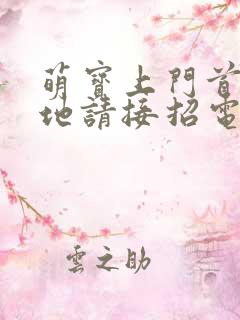 萌寶上門首
地請接招電
雲之助